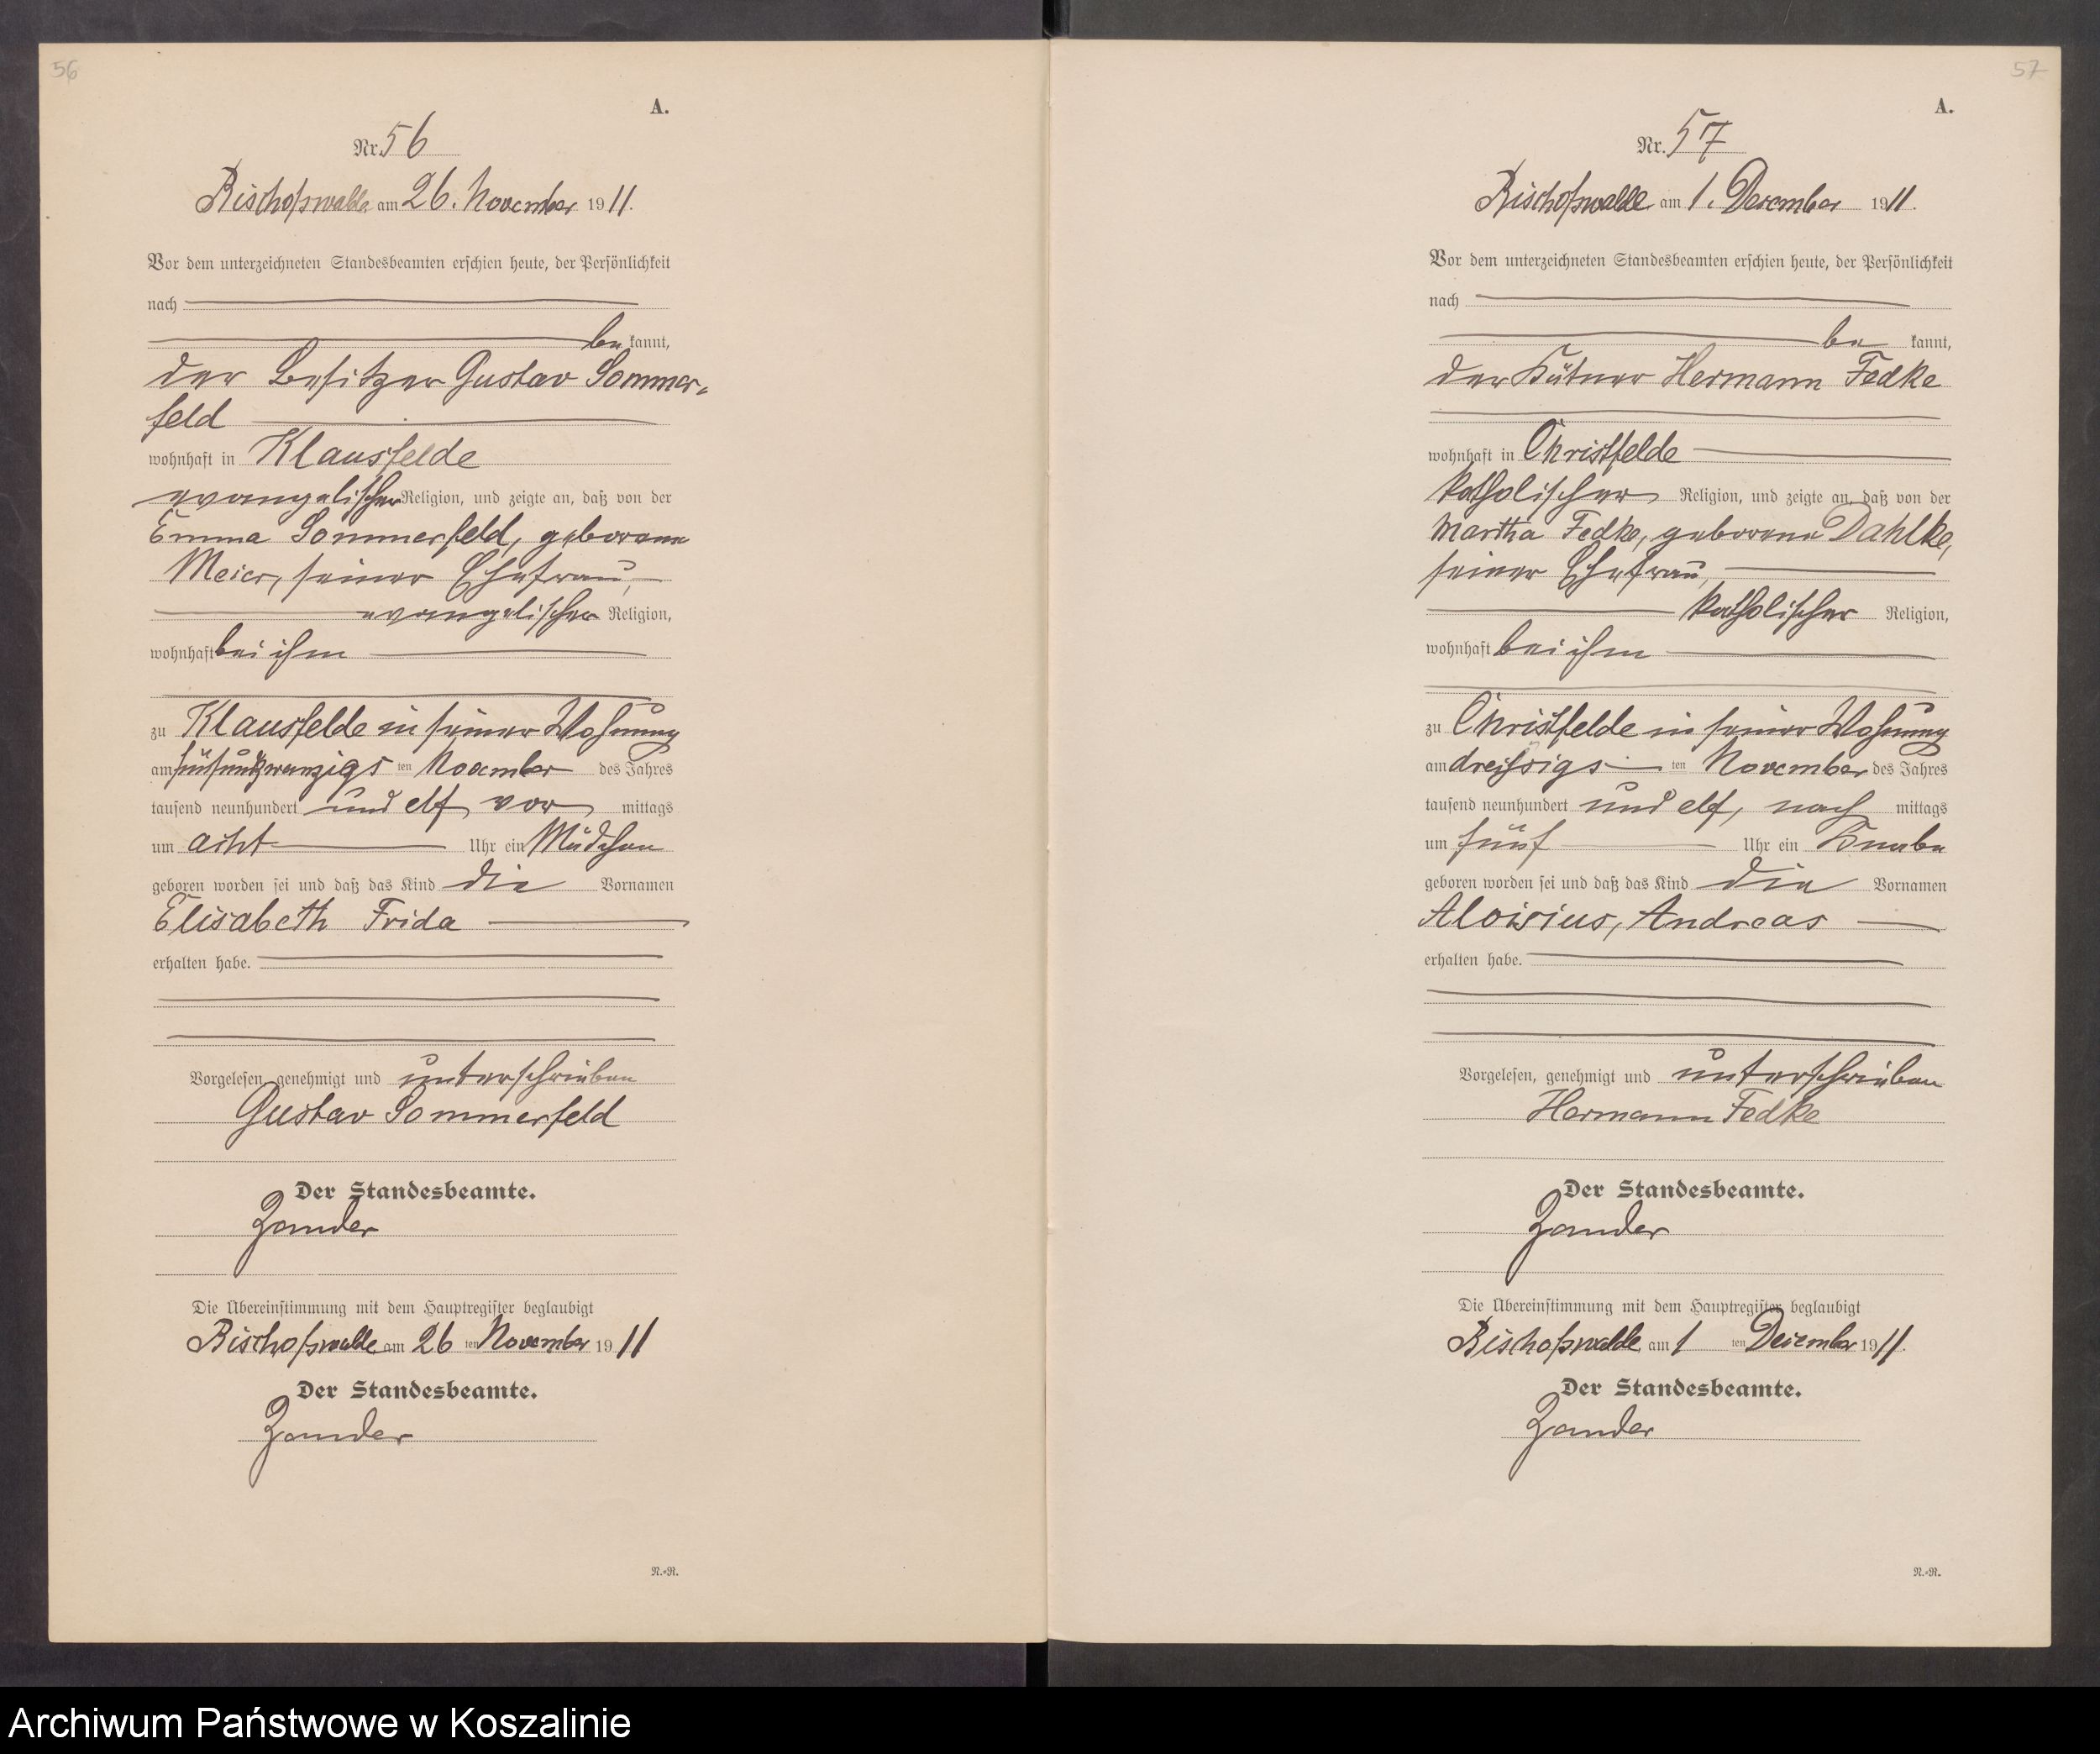 56
A.
Nr. 56
Bischofswalde am 26. November 1911.
Vor dem unterzeichneten Standesbeamten erschien heute, der Persönlichkeit
nach
be kannt,
der Besitzer Gustav Sommer-
feld
wohnhaft in Klausfelde
evangelischer Religion, und zeigte an, daß von der
Emma Sommerfeld, geborene
Meier, seiner Ehefrau,
evangelischer Religion,
wohnhaft bei ihm
zu Klausfelde in seiner Wohnung
am fünfundzwanzigs ten November des Jahres
tausend neunhundert und elf vor mittags
um acht Uhr ein Mädchen
geboren worden sei und daß das Kind die Vornamen
Elisabeth Frida
erhalten habe.
Vorgelesen, genehmigt und unterschrieben
Gustav Sommerfeld
Der Standesbeamte.
Zander
Die Übereinstimmung mit dem Hauptregister beglaubigt
Bischofswalde am 26 ten November 1911
Der Standesbeamte.
Zander
N.-N.
57
A.
Nr. 57
Bischofswalde am 1. Dezember 1911.
Vor dem unterzeichneten Standesbeamten erschien heute, der Persönlichkeit
nach
be kannt,
der Kätner Hermann Fedke
wohnhaft in Christfelde
katholischer Religion, und zeigte an, daß von der
Martha Fedke, geborene Dahlke,
seiner Ehefrau,
katholischer Religion,
wohnhaft bei ihm
zu Christfelde in seiner Wohnung
am dreißigs ten November des Jahres
tausend neunhundert und elf, nach mittags
um fünf Uhr ein Knabe
geboren worden sei und daß das Kind die Vornamen
Aloisius, Andreas
erhalten habe.
Vorgelesen, genehmigt und unterschrieben
Hermann Fedke
Der Standesbeamte.
Zander
Die Übereinstimmung mit dem Hauptregister beglaubigt
Bischofswalde am 1 ten Dezember 1911.
Der Standesbeamte.
Zander
N.-N.
Archiwum Państwowe w Koszalinie